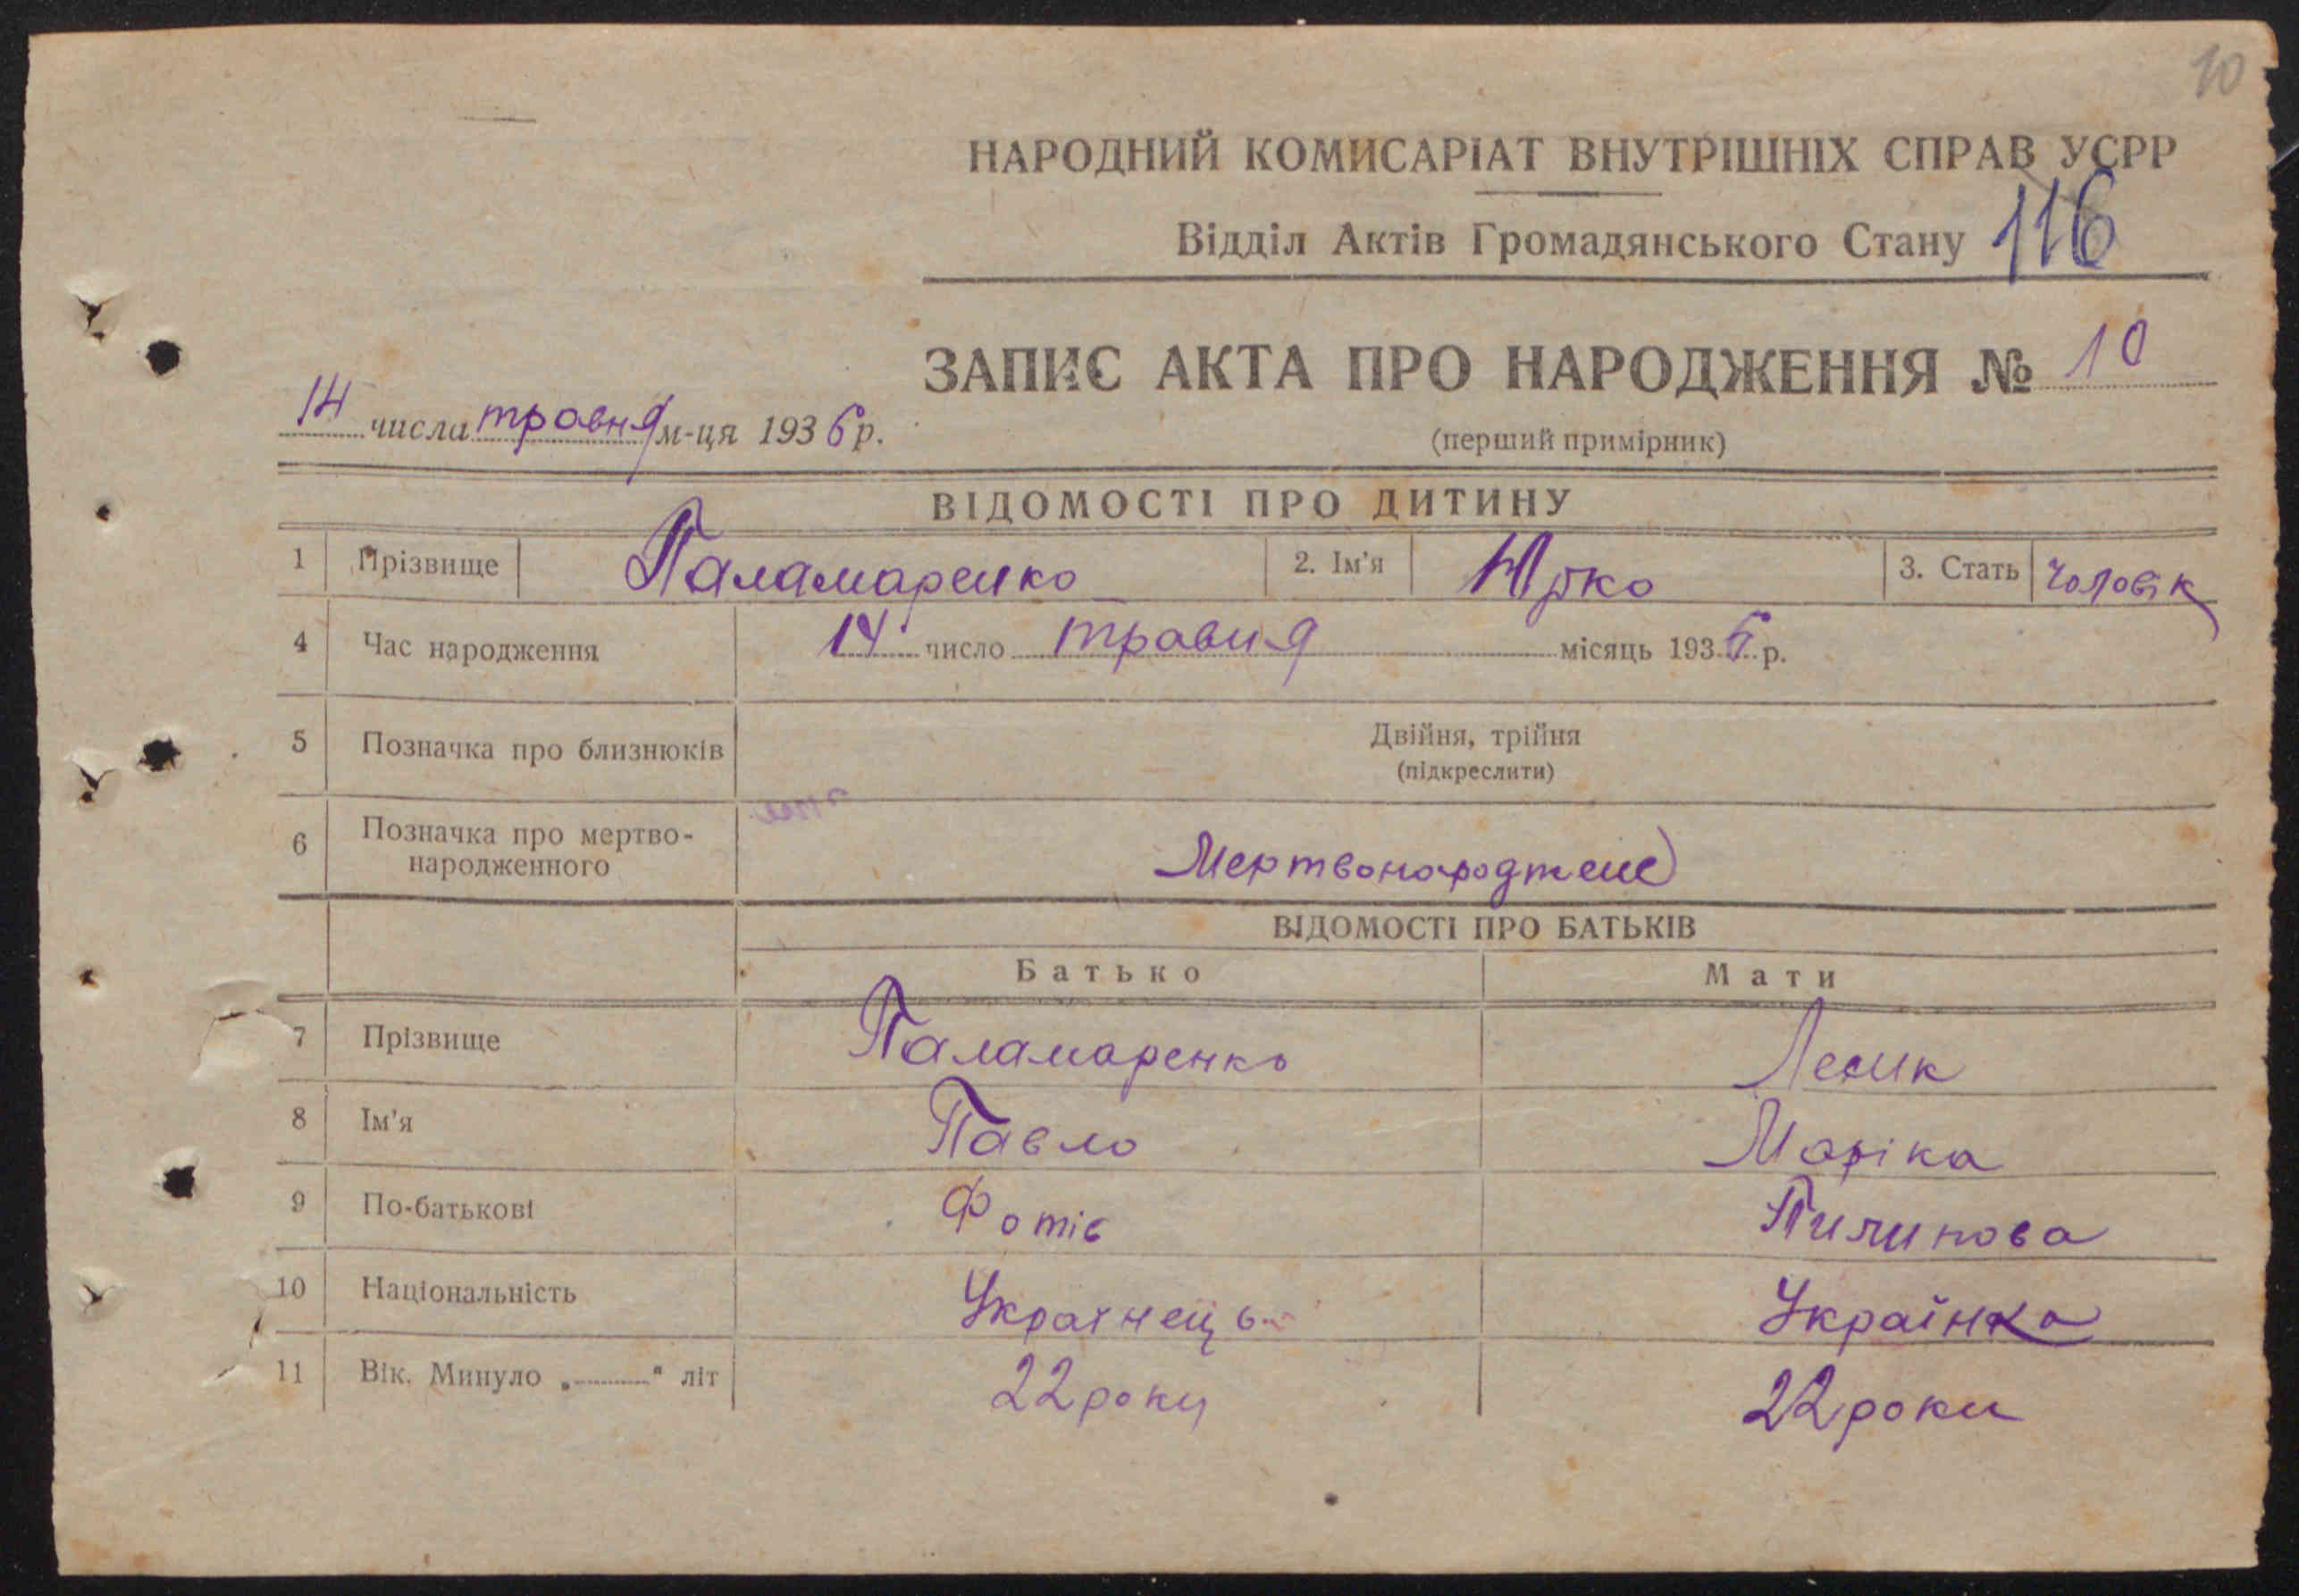 10
НАРОДНИЙ КОМИСАРІАТ ВНУТРІШНІХ СПРАВ УСРР
Відділ Актів Громадянського Стану 116
ЗАПИС АКТА ПРО НАРОДЖЕННЯ № 10
14 числа травня м-ця 1936 р.
(перший примірник)
ВІДОМОСТІ ПРО ДИТИНУ
1 Прізвище Паламаренко 2. Ім'я Юрко 3. Стать Чоловік
4 Час народження 14 число травня місяць 1936 р.
5 Позначка про близнюків Двійня, трійня
(підкреслити)
6 Позначка про мертво-
народженного Мертвонароджене
ВІДОМОСТІ ПРО БАТЬКІВ
Батько Мати
7 Прізвище Паламаренко
8 Ім'я Павло Маріка
9 По-батькові Фотів Пилипова
10 Національність Українець Українка
11 Вік. Минуло „ “ літ 22 роки 22 роки